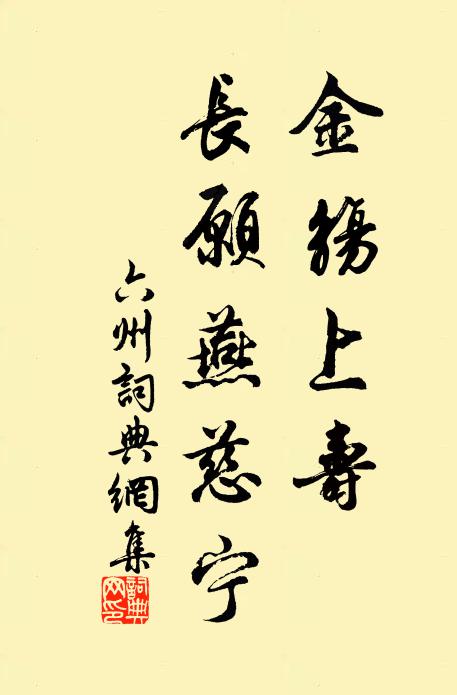 金觴上壽
長願燕慈宁
六州詞典網集
詞典网印